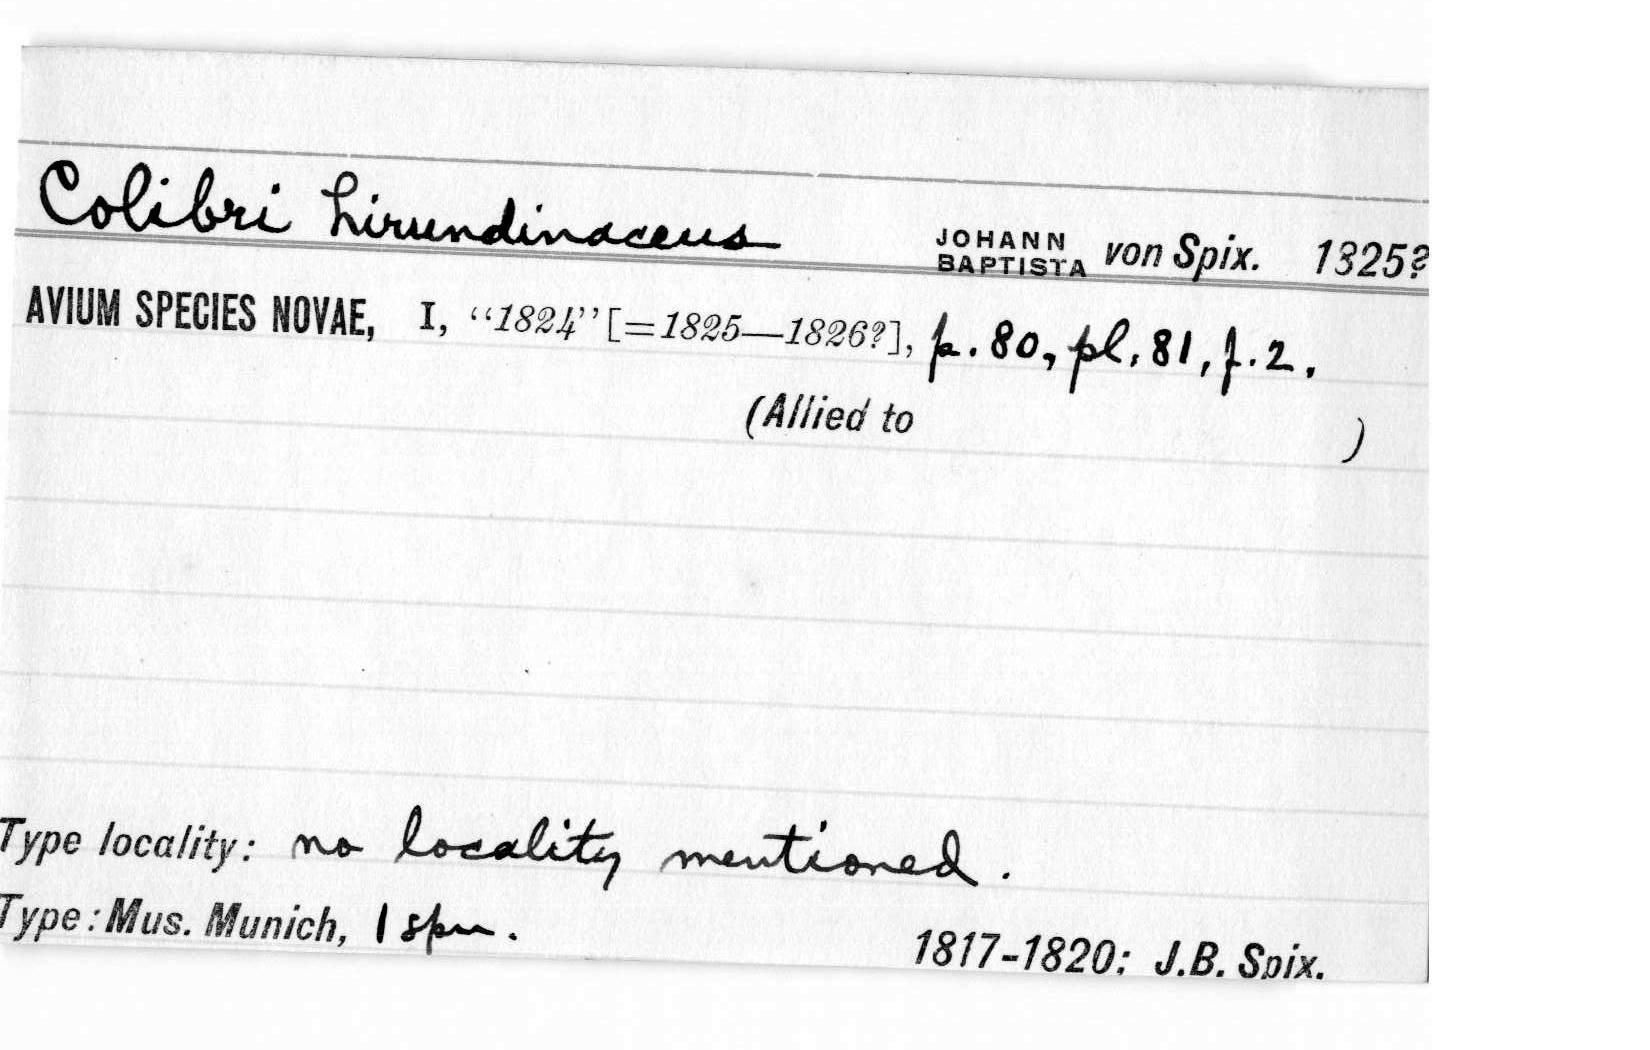 Colibri hirundinaceus JOHANN BAPTISTA von Spix. 1825?
AVIUM SPECIES NOVAE, I, “1824” [=1825—1826?], p. 80, pl. 81, f. 2.
(Allied to )
Type locality: no locality mentioned.
Type: Mus. Munich, 1 spm.
1817-1820; J.B. Spix.